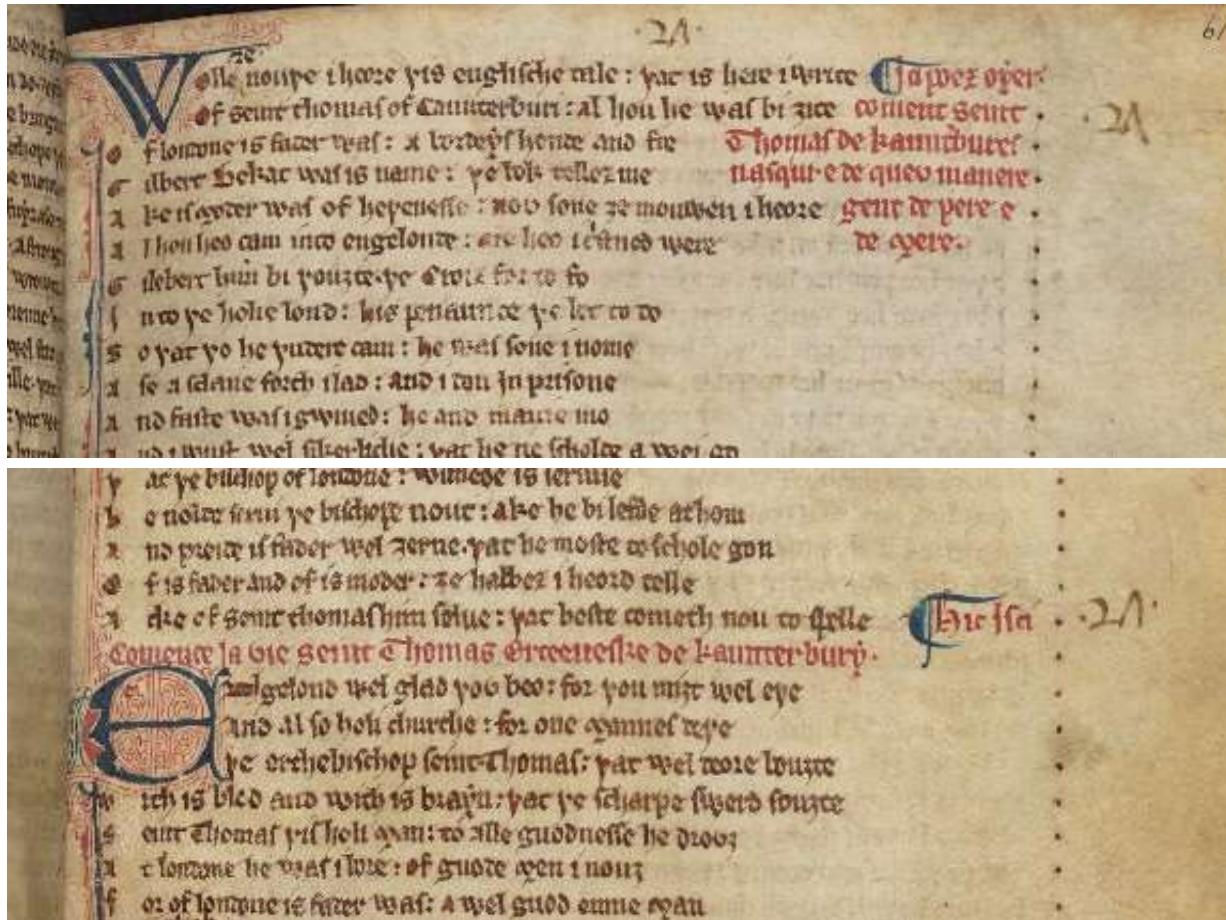 ·27· 61
Wolle ȝe nouþe i heore þis englische tale : þat is here i write ¶ Ja þoez oþer
Of seint thomas of Caunterburi : al hou he was bi ȝite coment seint
of londone is fader was : A bordeys hende and fre Thomas de kaunterbures
Gilbert Bekat was is name : þe bok tellez me nasqui · e de queu manere
Ake is moder was of heþenesse : nov sone ȝe mouwen i heore gent de pere e
Al hou heo cam into engelonde : are heo i cristned were de mere ·
Gilebert him bi þouȝte · þe croiz for to fo
Into þe holie lond : his penaunce þe bet to do
So þat þo he þudere cam : he was sone i nome
Ase a sclaue forth ilad : and i don in prisone
And faste was i gwiued : he and manie mo
And i wuste wel sikerliche : þat he ne scholde a wei go
þat þe bischop of londone :
he nolde þe bischope nouȝt : ake he bilefde at hom
And preide is fader wel ȝerne · þat he moste to schole gon
Of is fader and of is moder : ȝe habbez i heord telle
Ake of seint thomas him selue : þat beste cometh nou to spelle ¶ Hic Jsci
Comence la vie seint Thomas Erceueske de kaunterbury ·
Engelond wel glad þov beo : for þou miȝt wel eþe
And al so holi churche : for one mannes deþe
þe erchebischop seint Thomas : þat wel deore bouȝte
With is blod and with is brayn : þat þe scharpe swerd souȝte
Seint Thomas þis holi man : to alle guodnesse he drovȝ
At londone he was ibore : of guode men i nouȝ
for of londone is fader was : A wel guod man